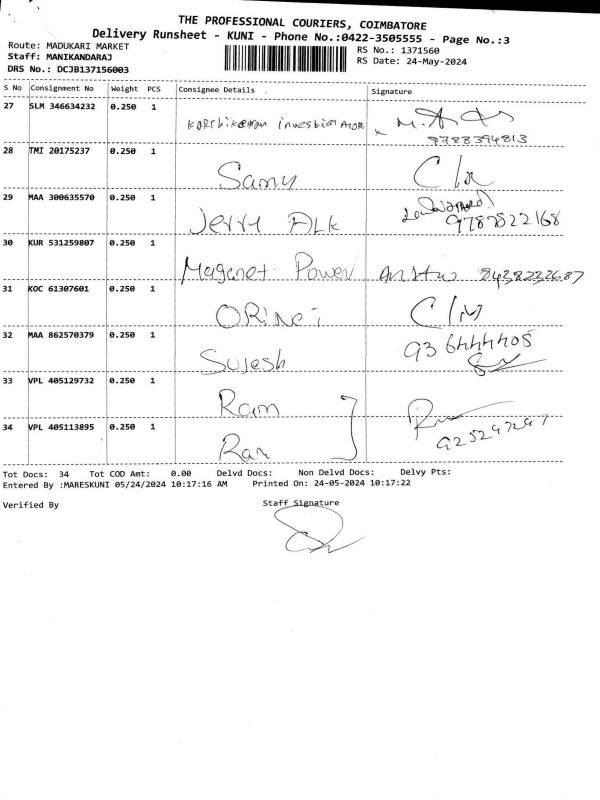 THE PROFESSIONAL COURIERS, COIMBATORE
Delivery Runsheet - KUNI - Phone No.:0422-3505555 - Page No.:3
Route: MADUKARI MARKET
RS No.: 1371560
Staff: MANIKANDARAJ
RS Date: 24-May-2024
DRS No.: DCJB137156003
S No Consignment No Weight PCS Consignee Details Signature
27 SLM 346634232 0.250 1
9788394813
28 TMI 20175237 0.250 1 Samy
29 MAA 300635570 0.250 1 Jerry ALK
30 KUR 531259807 0.250 1 Magaret Power
31 KOC 61307601 0.250 1 ORiNei
32 MAA 862570379 0.250 1 Sujesh
33 VPL 405129732 0.250 1 Ram
34 VPL 405113895 0.250 1 Ram
Tot Docs: 34 Tot COD Amt: 0.00 Delvd Docs: Non Delvd Docs: Delvy Pts:
Entered By :MARESKUNI 05/24/2024 10:17:16 AM Printed On: 24-05-2024 10:17:22
Verified By Staff Signature